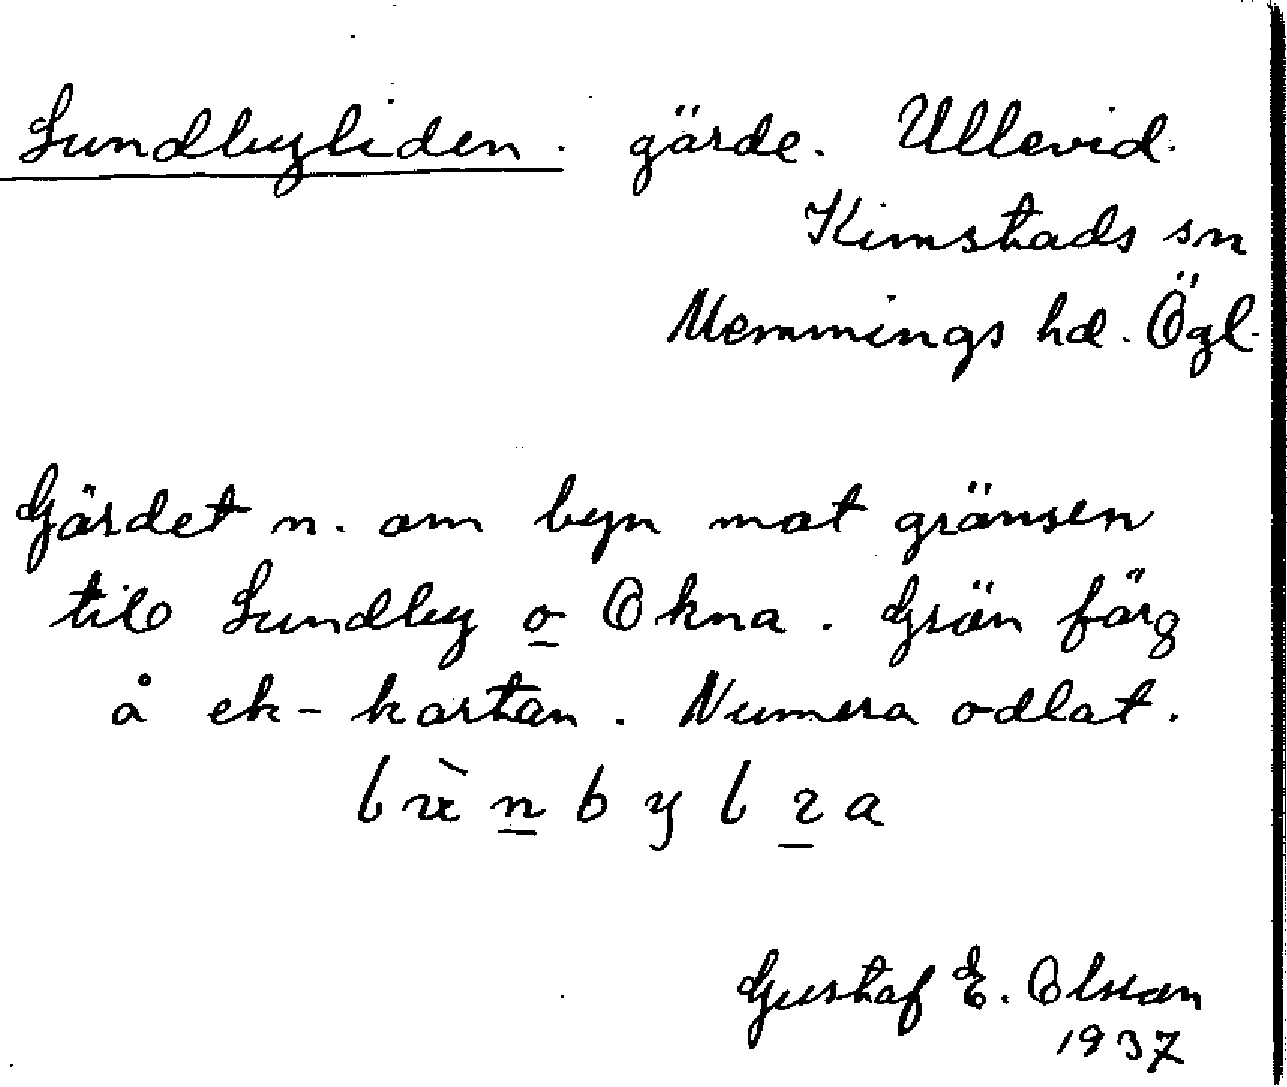 Lundbyliden. gärde. Ullevid.
Kimstads sn
Memmings hd. Ögl.
Gärdet n. om byn mot gränsen
till Lundby o Okna. Grön färg
å ek-kartan. Numera odlat.
Gustaf E. Olsson
1937